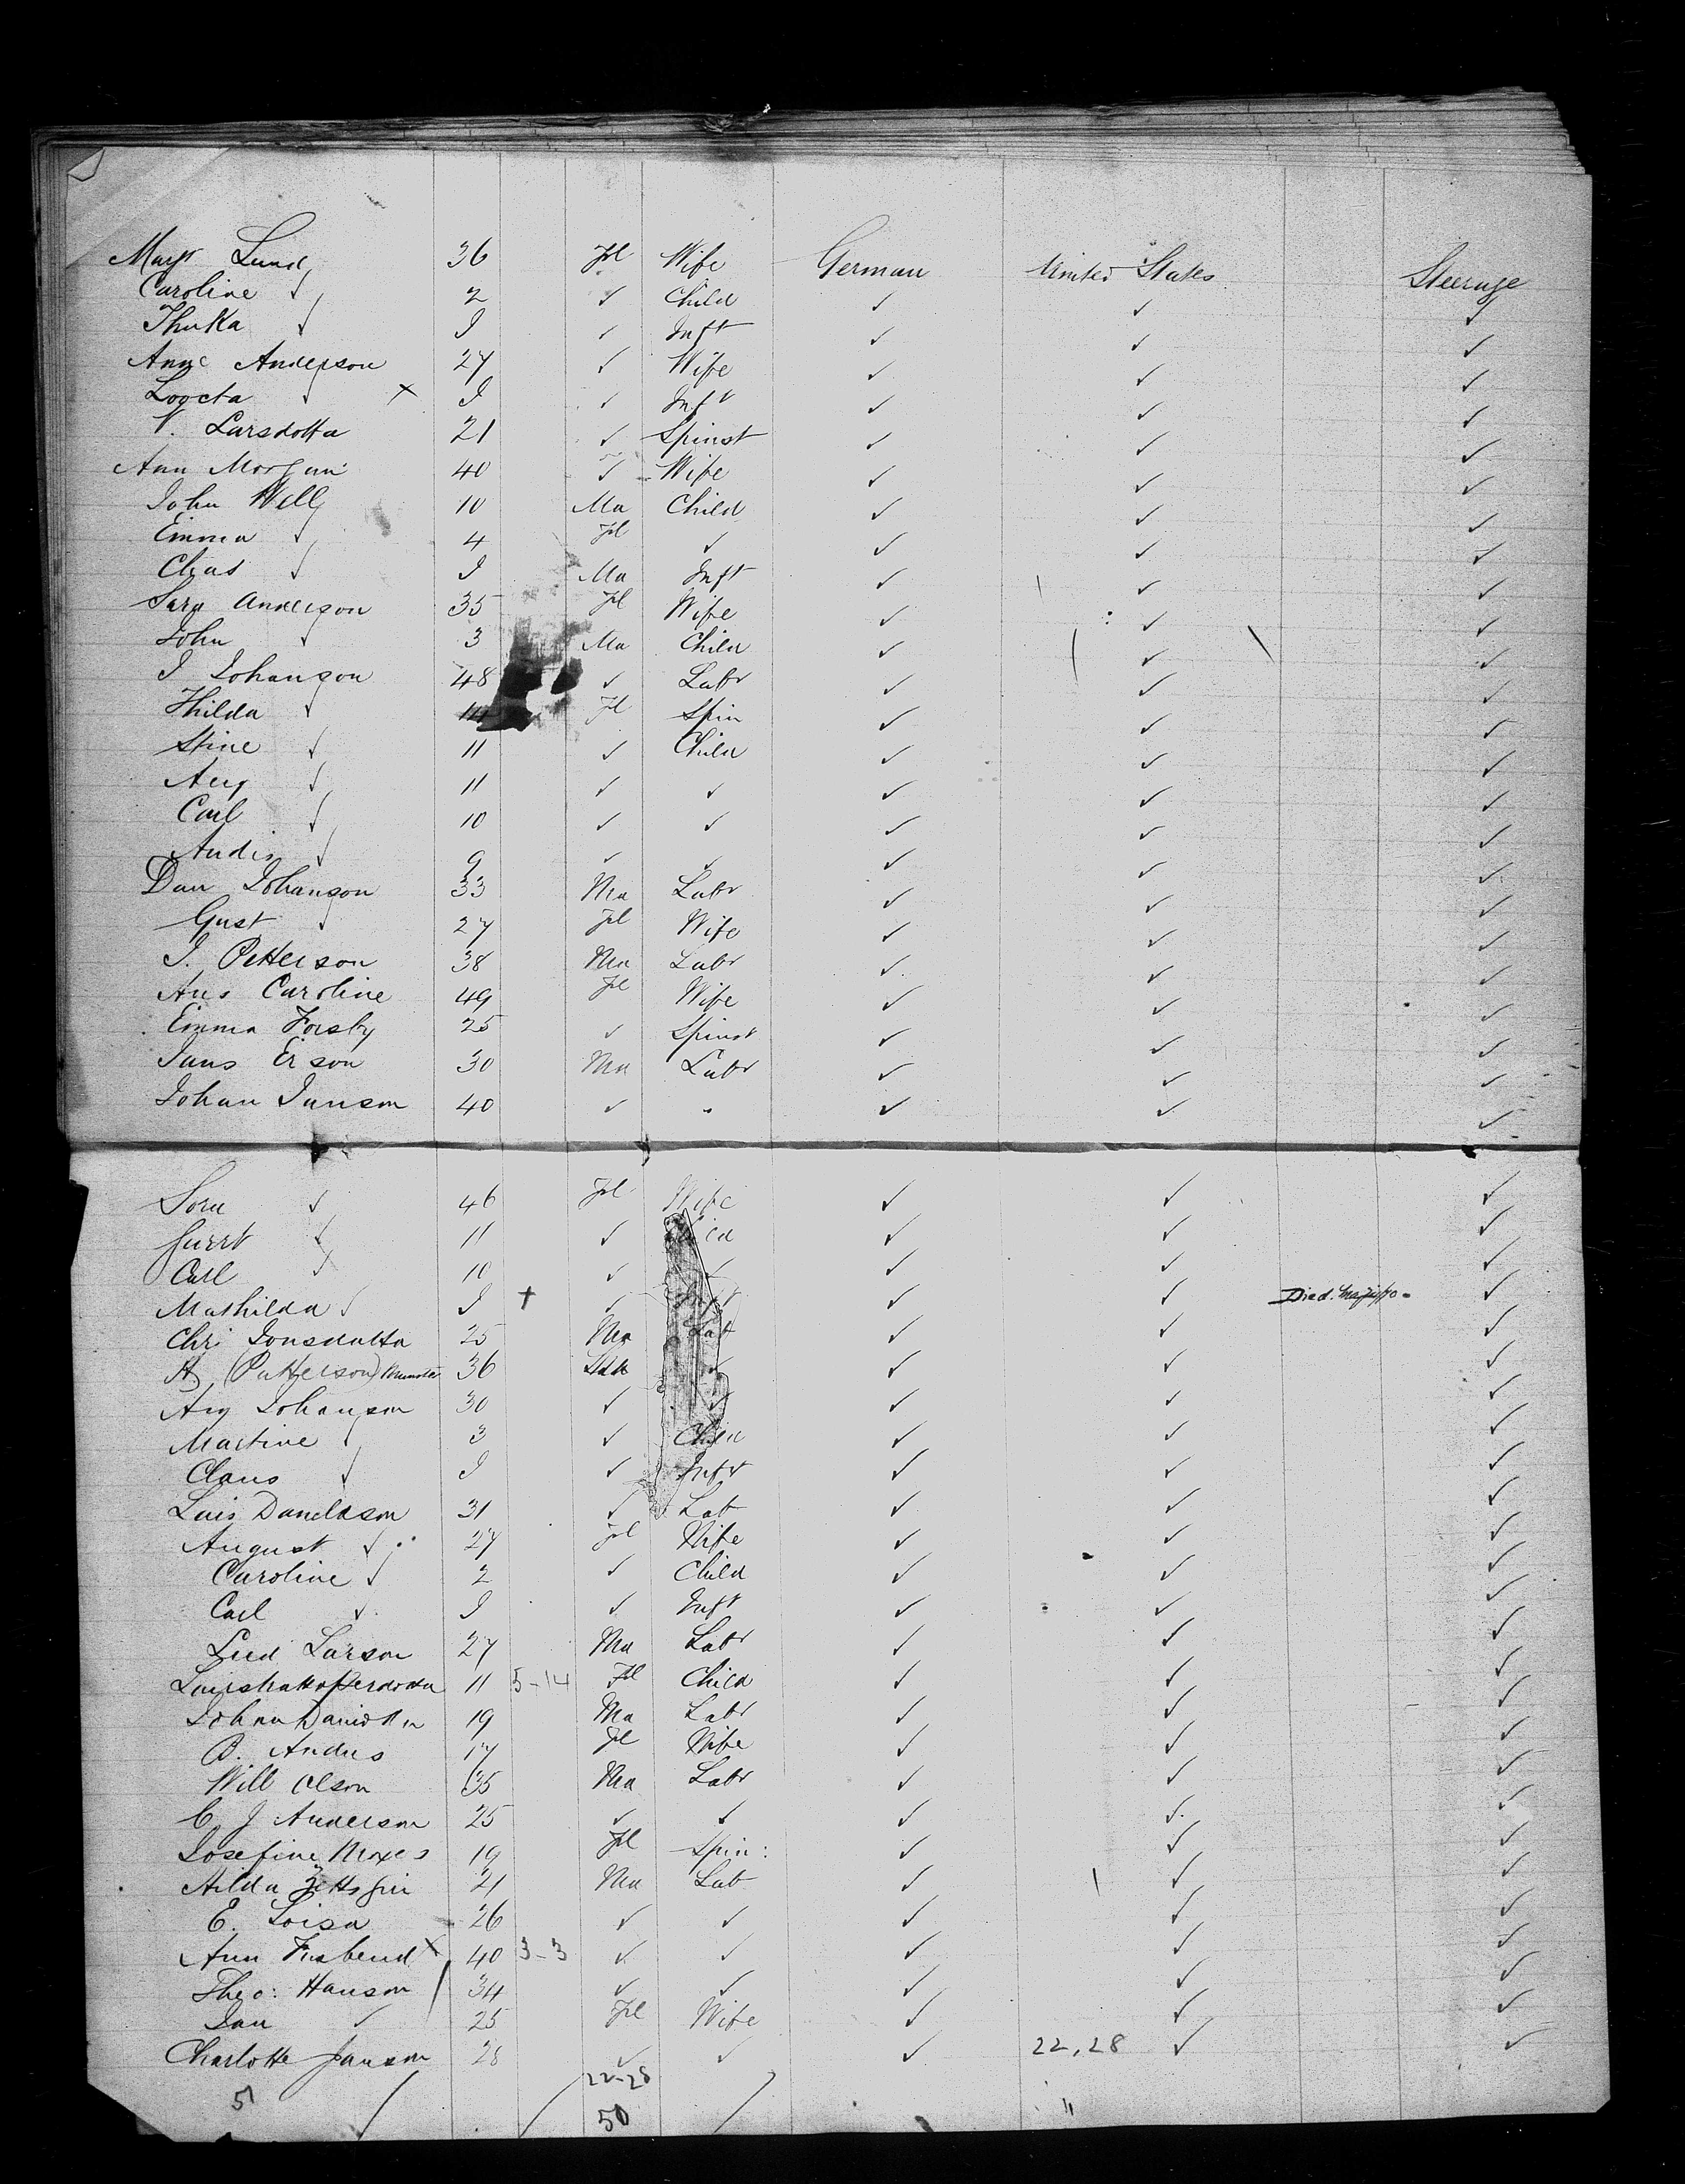 Mary Lund 36 Fl Wife German United States Steerage
Caroline ✓ 2 ✓ Child ✓ ✓ ✓
Thuka ✓ I ✓ Inft ✓ ✓ ✓
Anne Anderson 27 ✓ Wife ✓ ✓ ✓
✓ × I ✓ Inft ✓ ✓ ✓
V. Larsdotta 21 ✓ Spinst ✓ ✓ ✓
Ann Morgan 40 ✓ Wife ✓ ✓ ✓
John Well 10 Ma Child ✓ ✓ ✓
Emma ✓ 4 Fl ✓ ✓ ✓ ✓
Chas ✓ I Ma Inft ✓ ✓ ✓
Sara Anderson 35 Fl Wife ✓ ✓ ✓
John ✓ 3 Ma Child ✓ ✓ ✓
I Johanson 48 ✓ Labr ✓ ✓ ✓
Hilda ✓ 14 Fl Spin ✓ ✓ ✓
Stine ✓ 11 ✓ Child ✓ ✓ ✓
Aug ✓ 11 ✓ ✓ ✓ ✓ ✓
Carl ✓ 10 ✓ ✓ ✓ ✓ ✓
Andis ✓ 9 ✓ ✓ ✓ ✓ ✓
Dan Johanson 33 Ma Labr ✓ ✓ ✓
Gust ✓ 27 Fl Wife ✓ ✓ ✓
I. Petterson 38 Ma Labr ✓ ✓ ✓
Ans Caroline 49 Fl Wife ✓ ✓ ✓
Emma Forsby 25 ✓ Spinst ✓ ✓ ✓
Jans Erson 30 Ma Labr ✓ ✓ ✓
Johan Janson 40 ✓ " ✓ ✓ ✓
✓ 46 Fl Wife ✓ ✓ ✓
✓ 11 ✓ Child ✓ ✓ ✓
Carl ✓ 10 ✓ ✓ ✓ ✓ ✓
Mathilda ✓ I + ✓ Inft ✓ ✓ Died. ✓
Chri Jonsdatta 25 Ma Lab ✓ ✓ ✓
(Patterson) 36 ✓ ✓ ✓ ✓
Aug Johanson 30 ✓ ✓ ✓ ✓ ✓
Martine ✓ 3 ✓ Child ✓ ✓ ✓
Claus ✓ I ✓ Inft ✓ ✓ ✓
Lais Daneldson 31 ✓ Lab ✓ ✓ ✓
August ✓ 27 Fl Wife ✓ ✓ ✓
Caroline ✓ 2 ✓ Child ✓ ✓ ✓
Carl ✓ I ✓ Inft ✓ ✓ ✓
Larson 27 Ma Labr ✓ ✓ ✓
11 5-14 Fl Child ✓ ✓ ✓
19 Ma Labr ✓ ✓ ✓
Andus 17 Fl Wife ✓ ✓ ✓
Will Olson 35 Ma Labr ✓ ✓ ✓
C. J Anderson 25 ✓ ✓ ✓ ✓ ✓
Josefine Moxes 19 Fl Spin: ✓ ✓ ✓
Hilda 21 Ma Lab ✓ ✓ ✓
E. Loisa 26 ✓ ✓ ✓ ✓ ✓
Ann × 40 3-3 ✓ ✓ ✓ ✓ ✓
Theo: Hanson 34 ✓ ✓ ✓ ✓ ✓
Jan ✓ 25 Fl Wife ✓ ✓ ✓
Charlotte Janson 28 ✓ ✓ ✓ 22,28 ✓ ✓
22-28
51 / / 50 / "